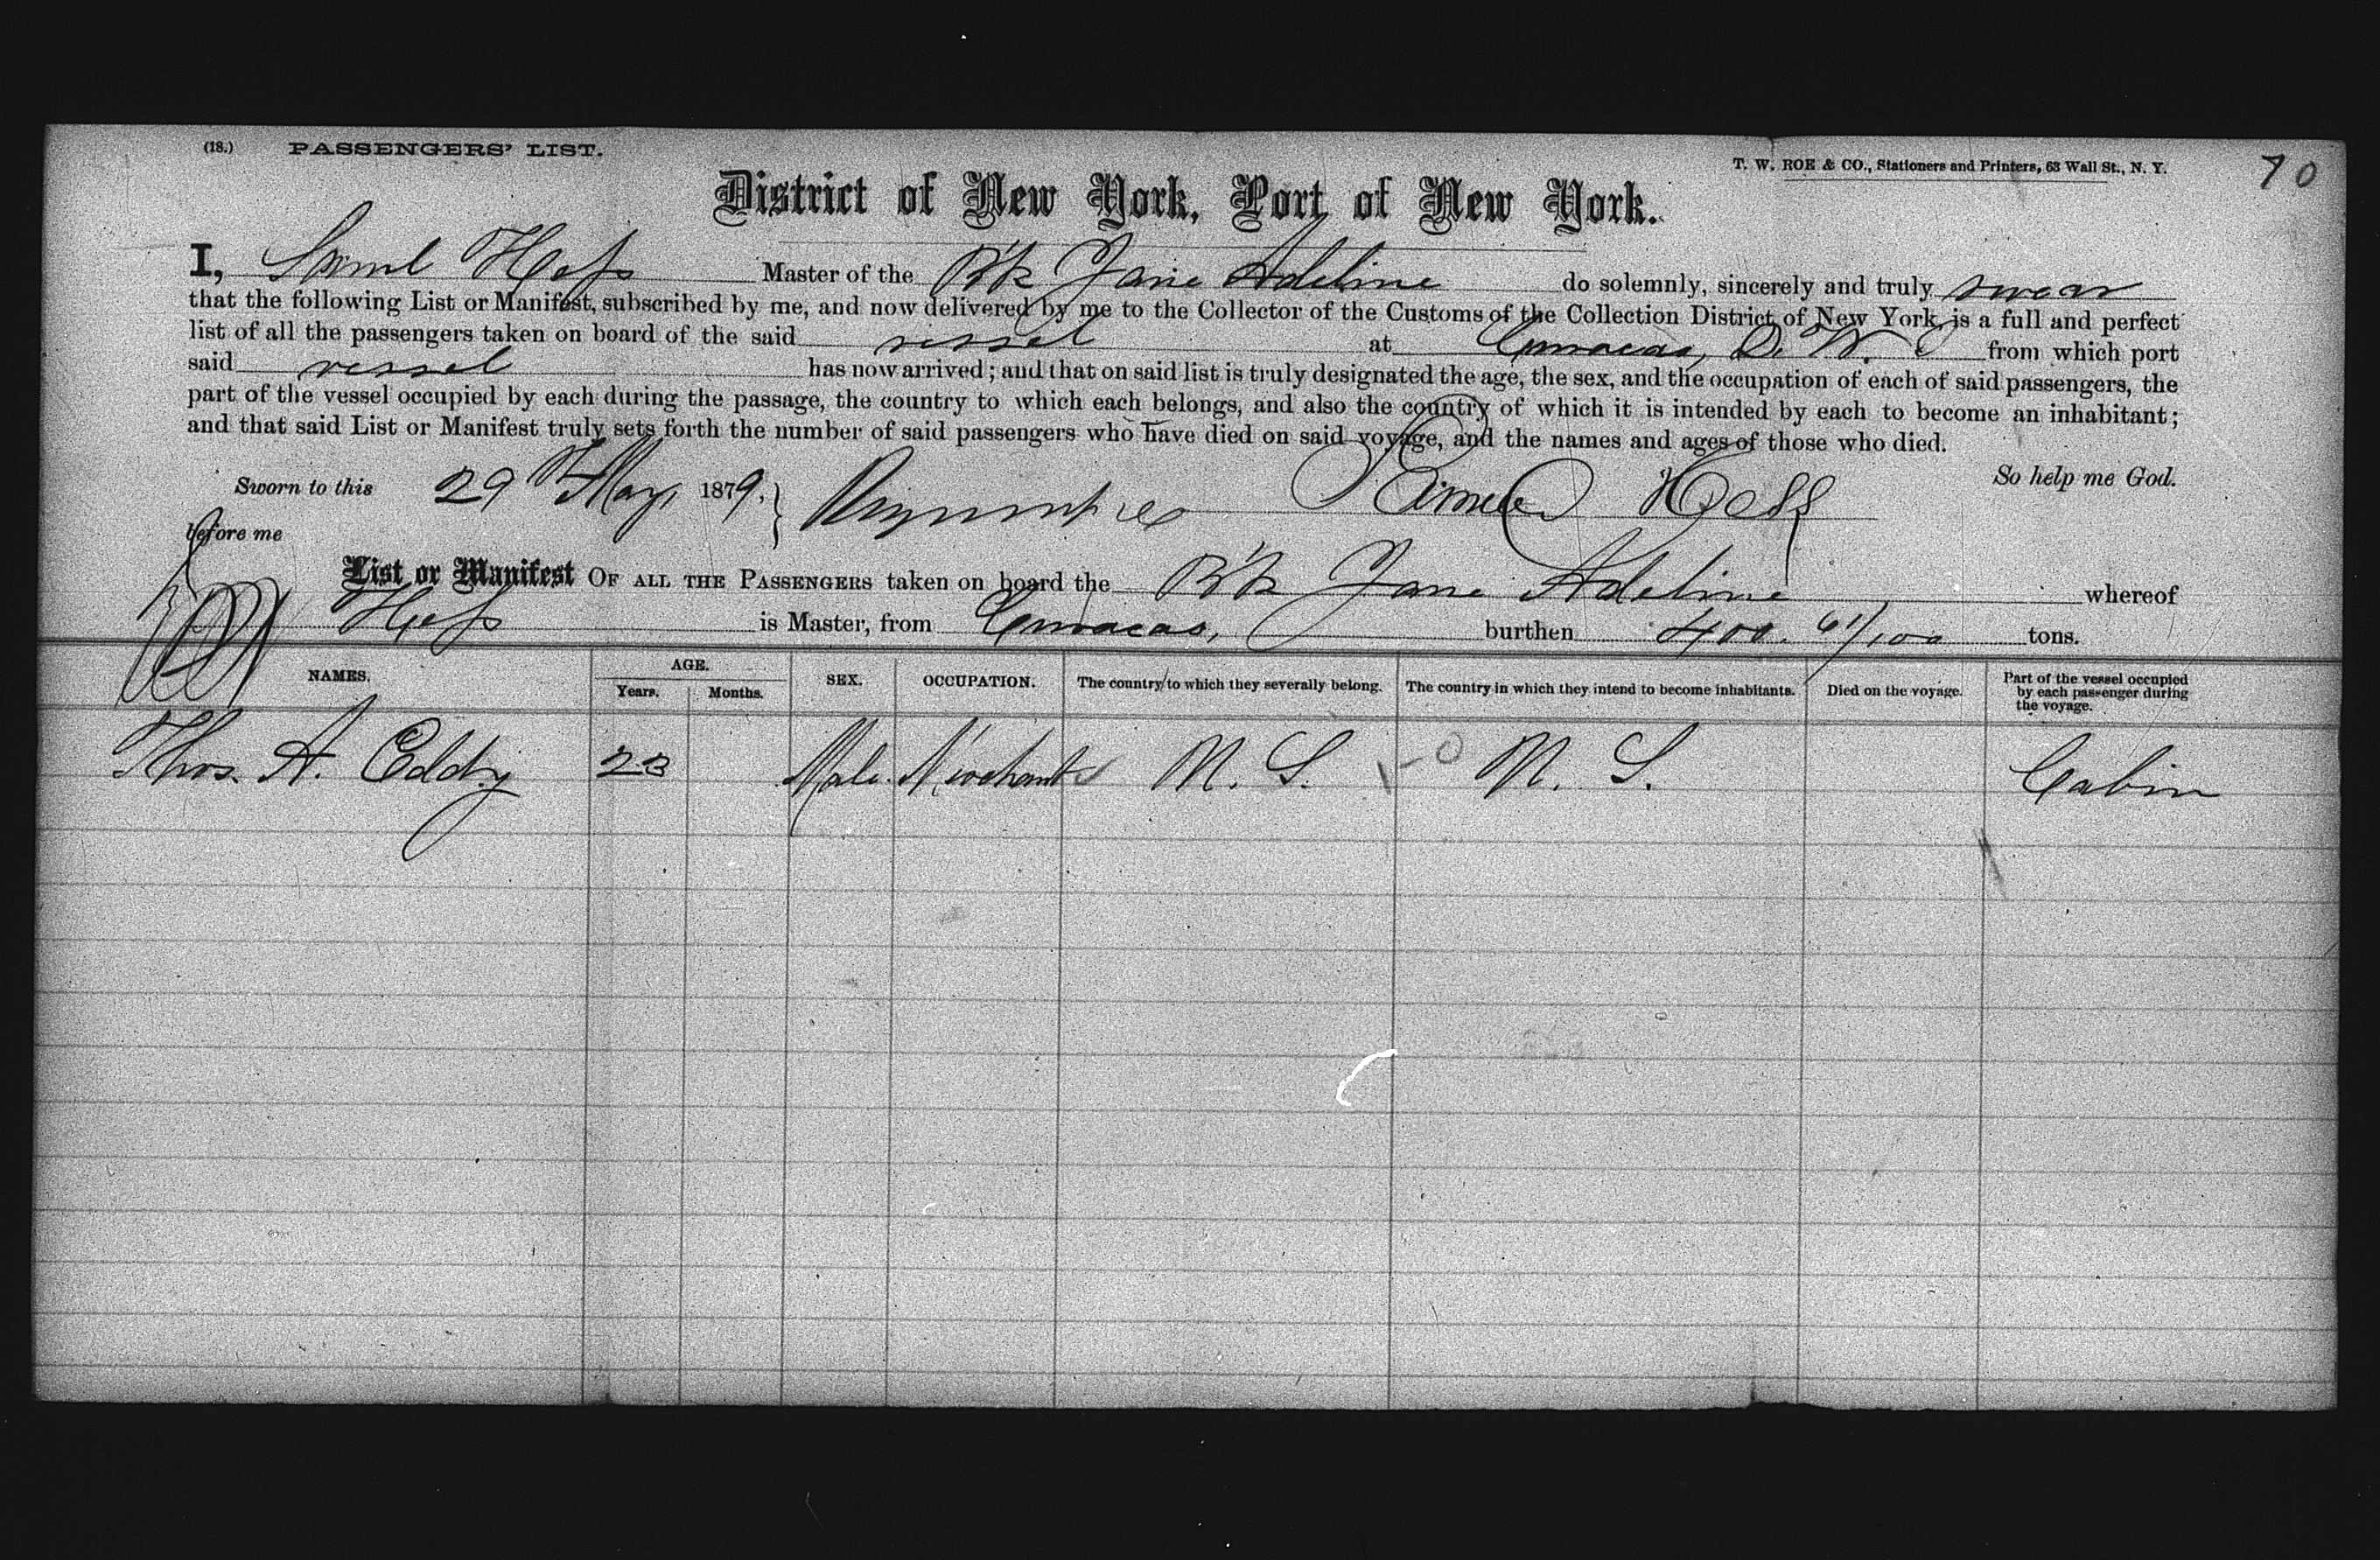 (18.) PASSENGERS' LIST.
T. W. ROE & CO., Stationers and Printers, 63 Wall St., N. Y.
70
District of New York, Port of New York.
I, Saml Hess Master of the B'k Jane Adeline do solemnly, sincerely and truly swear
that the following List or Manifest, subscribed by me, and now delivered by me to the Collector of the Customs of the Collection District of New York, is a full and perfect
list of all the passengers taken on board of the said vessel at Curacao, D. W. I from which port
said vessel has now arrived; and that on said list is truly designated the age, the sex, and the occupation of each of said passengers, the
part of the vessel occupied by each during the passage, the country to which each belongs, and also the country of which it is intended by each to become an inhabitant;
and that said List or Manifest truly sets forth the number of said passengers who have died on said voyage, and the names and ages of those who died.
So help me God.
Sworn to this 29 May, 1879. Hess
before me
List or Manifest OF ALL THE PASSENGERS taken on board the B'k Jane Adeline whereof
Hess is Master, from Curacao, burthen 400. 61/100 tons.
NAMES. AGE. SEX. OCCUPATION. The country to which they severally belong. The country in which they intend to become inhabitants. Died on the voyage. Part of the vessel occupied by each passenger during the voyage.
Years. Months.
Thos. A. Eddy 23 Male. Merchant U. S. U. S. Cabin